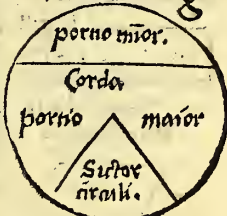 portio miñor.
Corda
portio maior
Sector
circuli.